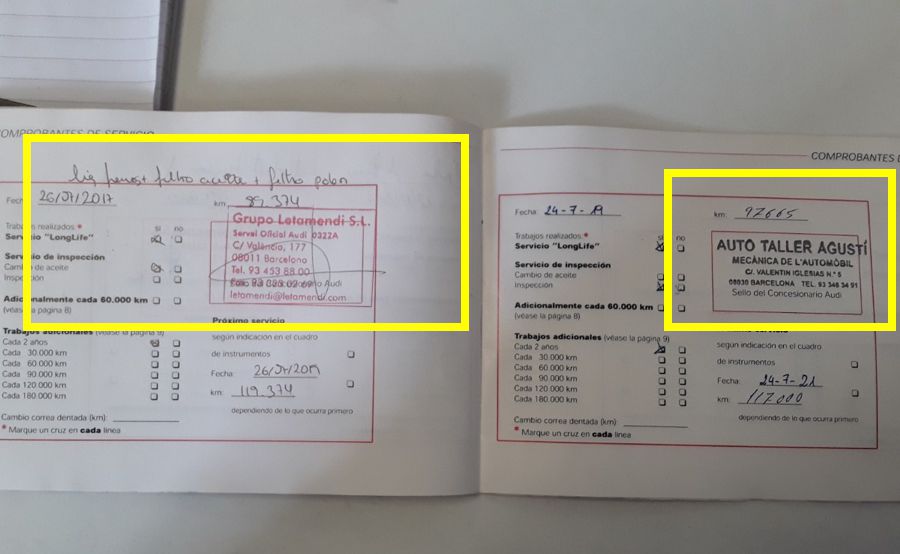 COMPROBANTES DE SERVICIO
liq frenos + filtro aceite + filtro polen
Fecha: 26/07/2017 km: 89.374
Trabajos realizados: * si no
Servicio "LongLife"
Servicio de inspección
Cambio de aceite
Inspección
Adicionalmente cada 60.000 km
(véase la página 8)
Grupo Letamendi S.L.
Servei Oficial Audi 0322A
C/ València, 177
08011 Barcelona
Tel. 93 453 88.00
93 323 02 69
letamendi@letamendi.com
Trabajos adicionales (véase la página 9)
Cada 2 años
Cada 30.000 km
Cada 60.000 km
Cada 90.000 km
Cada 120.000 km
Cada 180.000 km
Próximo servicio
según indicación en el cuadro
de instrumentos
Fecha:
km: 119.374
dependiendo de lo que ocurra primero
Cambio correa dentada (km):
* Marque un cruz en cada linea
COMPROBANTES D
Fecha: 24-7-19 km: 97665
Trabajos realizados: * si no
Servicio "LongLife"
Servicio de inspección
Cambio de aceite
Inspección
Adicionalmente cada 60.000 km
(véase la página 8)
AUTO TALLER AGUSTÍ
MECÀNICA DE L'AUTOMÒBIL
C/. VALENTIN IGLESIAS N.º 5
08030 BARCELONA TEL. 93 346 34 91
Sello del Concesionario Audi
Trabajos adicionales (véase la página 9)
Cada 2 años
Cada 30.000 km
Cada 60.000 km
Cada 90.000 km
Cada 120.000 km
Cada 180.000 km
según indicación en el cuadro
de instrumentos
Fecha: 24-7-21
km: 117.000
dependiendo de lo que ocurra primero
Cambio correa dentada (km):
* Marque un cruz en cada linea